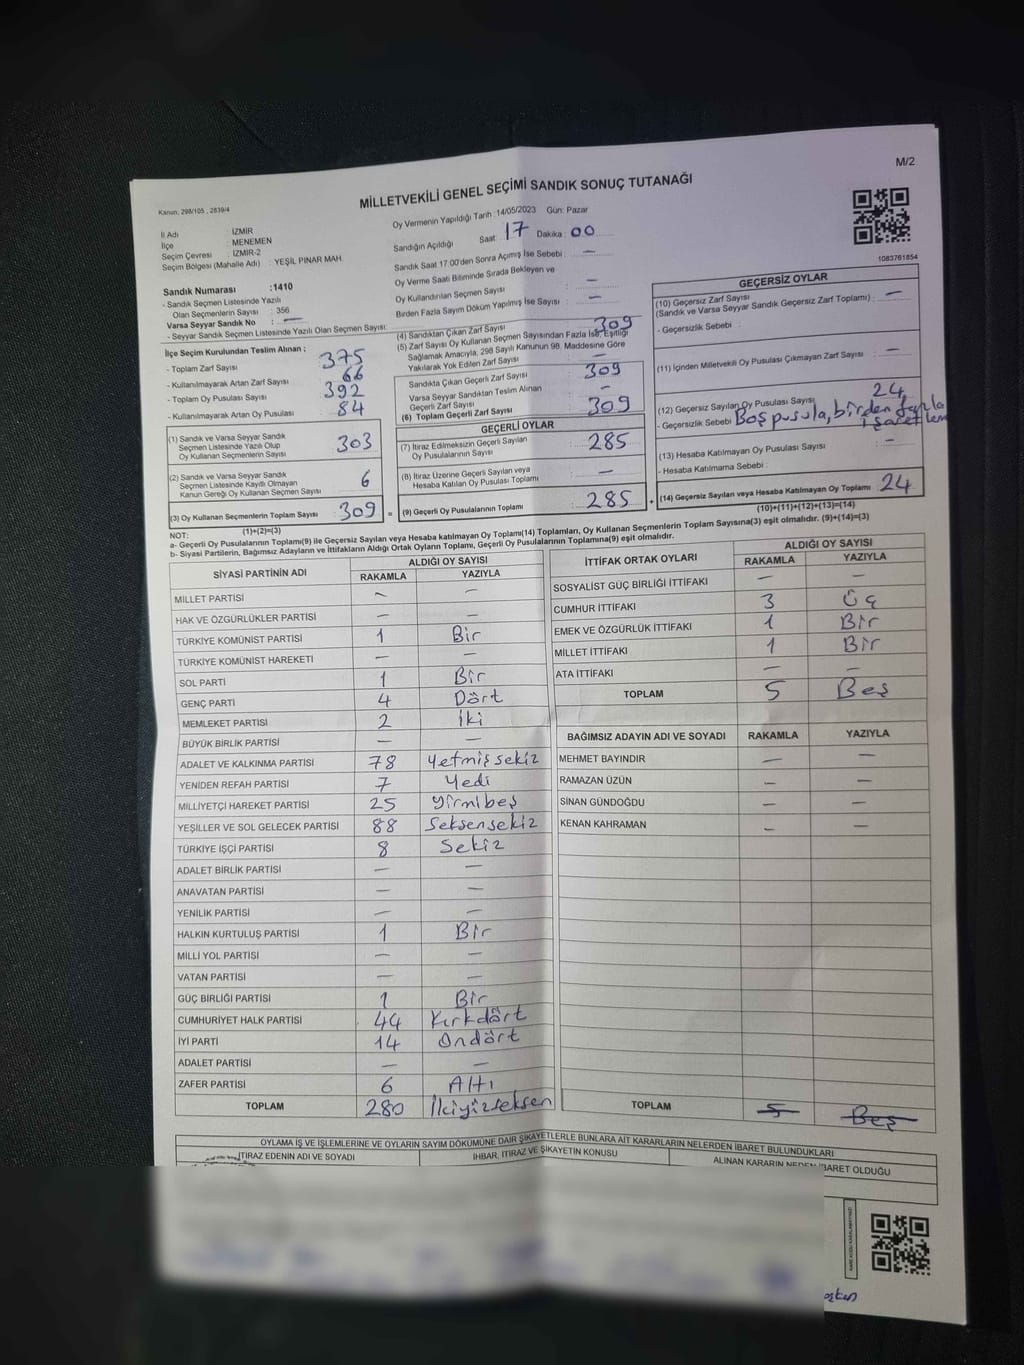 M/2
MİLLETVEKİLİ GENEL SEÇİMİ SANDIK SONUÇ TUTANAĞI
Kanun: 298/105 , 2839/4
Oy Vermenin Yapıldığı Tarih : 14/05/2023 Gün: Pazar
İl Adı : İZMİR
İlçe : MENEMEN
Seçim Çevresi : İZMİR-2
Seçim Bölgesi (Mahalle Adı) : YEŞİL PINAR MAH.
Sandığın Açıldığı Saat: 17 Dakika: 00
Sandık Saat 17.00'den Sonra Açılmış İse Sebebi : —
Oy Verme Saati Bitiminde Sırada Bekleyen ve
Oy Kullandırılan Seçmen Sayısı : —
Birden Fazla Sayım Döküm Yapılmış İse Sayısı : —
1083761854
Sandık Numarası :1410
- Sandık Seçmen Listesinde Yazılı
Olan Seçmenlerin Sayısı : 356
Varsa Seyyar Sandık No : —
- Seyyar Sandık Seçmen Listesinde Yazılı Olan Seçmen Sayısı:
İlçe Seçim Kurulundan Teslim Alınan ;
- Toplam Zarf Sayısı 375
- Kullanılmayarak Artan Zarf Sayısı 66
- Toplam Oy Pusulası Sayısı 392
- Kullanılmayarak Artan Oy Pusulası 84
(1) Sandık ve Varsa Seyyar Sandık
Seçmen Listesinde Yazılı Olup
Oy Kullanan Seçmenlerin Sayısı 303
(2) Sandık ve Varsa Seyyar Sandık
Seçmen Listesinde Kayıtlı Olmayan
Kanun Gereği Oy Kullanan Seçmen Sayısı 6
(3) Oy Kullanan Seçmenlerin Toplam Sayısı 309 =
(1)+(2)=(3)
(4) Sandıktan Çıkan Zarf Sayısı 309
(5) Zarf Sayısı Oy Kullanan Seçmen Sayısından Fazla İse, Eşitliği
Sağlamak Amacıyla, 298 Sayılı Kanunun 98. Maddesine Göre
Yakılarak Yok Edilen Zarf Sayısı —
Sandıkta Çıkan Geçerli Zarf Sayısı 309
Varsa Seyyar Sandıktan Teslim Alınan
Geçerli Zarf Sayısı —
(6) Toplam Geçerli Zarf Sayısı 309
GEÇERLİ OYLAR
(7) İtiraz Edilmeksizin Geçerli Sayılan
Oy Pusulalarının Sayısı 285
(8) İtiraz Üzerine Geçerli Sayılan veya
Hesaba Katılan Oy Pusulası Toplamı —
(9) Geçerli Oy Pusulalarının Toplamı 285 +
GEÇERSİZ OYLAR
(10) Geçersiz Zarf Sayısı
(Sandık ve Varsa Seyyar Sandık Geçersiz Zarf Toplamı) : —
- Geçersizlik Sebebi :
(11) İçinden Milletvekili Oy Pusulası Çıkmayan Zarf Sayısı —
(12) Geçersiz Sayılan Oy Pusulası Sayısı 24
- Geçersizlik Sebebi Boş pusula, birden fazla
işaretleme
(13) Hesaba Katılmayan Oy Pusulası Sayısı —
- Hesaba Katılmama Sebebi :
(14) Geçersiz Sayılan veya Hesaba Katılmayan Oy Toplamı 24
(10)+(11)+(12)+(13)=(14)
NOT:
a- Geçerli Oy Pusulalarının Toplamı(9) ile Geçersiz Sayılan veya Hesaba katılmayan Oy Toplamı(14) Toplamları, Oy Kullanan Seçmenlerin Toplam Sayısına(3) eşit olmalıdır. (9)+(14)=(3)
b- Siyasi Partilerin, Bağımsız Adayların ve İttifakların Aldığı Ortak Oyların Toplamı, Geçerli Oy Pusulalarının Toplamına(9) eşit olmalıdır.
SİYASİ PARTİNİN ADI ALDIĞI OY SAYISI
RAKAMLA YAZIYLA
MİLLET PARTİSİ — —
HAK VE ÖZGÜRLÜKLER PARTİSİ — —
TÜRKİYE KOMÜNİST PARTİSİ 1 Bir
TÜRKİYE KOMÜNİST HAREKETİ — —
SOL PARTİ 1 Bir
GENÇ PARTİ 4 Dört
MEMLEKET PARTİSİ 2 İki
BÜYÜK BİRLİK PARTİSİ — —
ADALET VE KALKINMA PARTİSİ 78 Yetmiş sekiz
YENİDEN REFAH PARTİSİ 7 Yedi
MİLLİYETÇİ HAREKET PARTİSİ 25 Yirmibeş
YEŞİLLER VE SOL GELECEK PARTİSİ 88 Seksensekiz
TÜRKİYE İŞÇİ PARTİSİ 8 Sekiz
ADALET BİRLİK PARTİSİ — —
ANAVATAN PARTİSİ — —
YENİLİK PARTİSİ — —
HALKIN KURTULUŞ PARTİSİ 1 Bir
MİLLİ YOL PARTİSİ — —
VATAN PARTİSİ — —
GÜÇ BİRLİĞİ PARTİSİ 1 Bir
CUMHURİYET HALK PARTİSİ 44 Kırkdört
İYİ PARTİ 14 Ondört
ADALET PARTİSİ — —
ZAFER PARTİSİ 6 Altı
TOPLAM 280 İkiyüzseksen
İTTİFAK ORTAK OYLARI ALDIĞI OY SAYISI
RAKAMLA YAZIYLA
SOSYALİST GÜÇ BİRLİĞİ İTTİFAKI — —
CUMHUR İTTİFAKI 3 Üç
EMEK VE ÖZGÜRLÜK İTTİFAKI 1 Bir
MİLLET İTTİFAKI 1 Bir
ATA İTTİFAKI — —
TOPLAM 5 Beş
BAĞIMSIZ ADAYIN ADI VE SOYADI RAKAMLA YAZIYLA
MEHMET BAYINDIR — —
RAMAZAN ÜZÜN — —
SİNAN GÜNDOĞDU — —
KENAN KAHRAMAN — —
TOPLAM 5 Beş
OYLAMA İŞ VE İŞLEMLERİNE VE OYLARIN SAYIM DÖKÜMÜNE DAİR ŞİKAYETLERLE BUNLARA AİT KARARLARIN NELERDEN İBARET BULUNDUKLARI
İTİRAZ EDENİN ADI VE SOYADI İHBAR, İTİRAZ VE ŞİKAYETİN KONUSU ALINAN KARARIN NEDEN İBARET OLDUĞU